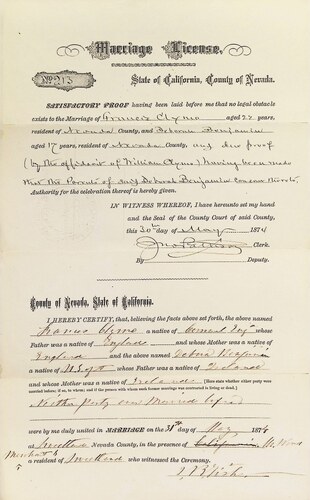 Marriage License.
State of California, County of Nevada.
SATISFACTORY PROOF having been laid before me that no legal obstacle
exists to the Marriage of Francis Clymo aged 22 years,
resident of Nevada County, and Deborah Benjamin
aged 17 years, resident of Nevada County, and due proof
(by the affidavit of William Clymo) having been made
that the Parents of said Deborah Benjamin consent thereto.
Authority for the celebration thereof is hereby given.
IN WITNESS WHEREOF, I have hereunto set my hand
and the Seal of the County Court of said County,
this 30th day of May 1874
Clerk.
By Deputy.
County of Nevada, State of California.
I HEREBY CERTIFY, that, believing the facts above set forth, the above named
Francis Clymo a native of Cornwall Eng whose
Father was a native of England and whose Mother was a native of
England and the above named Debora Benjamin
a native of whose Father was a native of Ireland
and whose Mother was a native of Ireland (Here state whether either party were
married before; if so, to whom; and if the person with whom such former marriage was contracted is living or dead.)
Neither party ever Married before
were by me duly united in MARRIAGE on the 31st day of May 1874
at Sweetland Nevada County, in the presence of
a resident of Sweetland who witnessed the Ceremony.